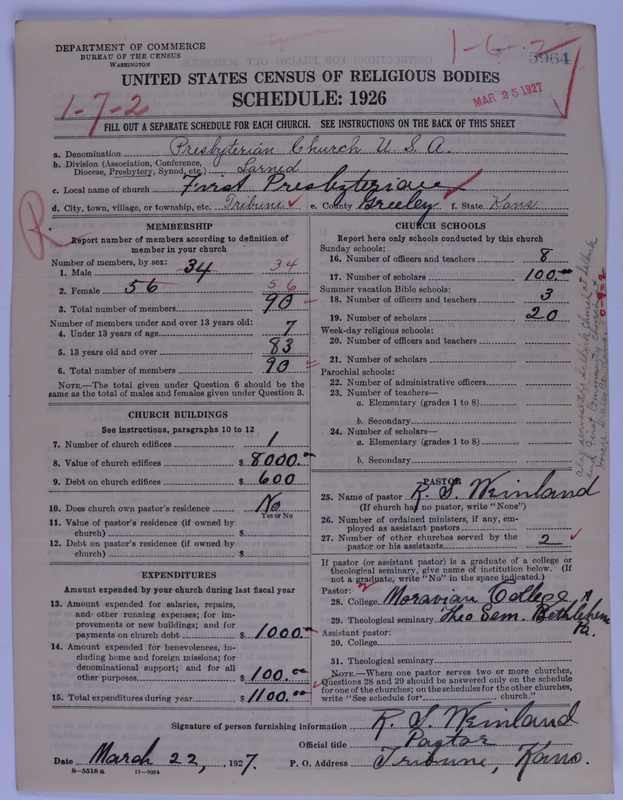 DEPARTMENT OF COMMERCE
BUREAU OF THE CENSUS
WASHINGTON
1-6-2
5964
UNITED STATES CENSUS OF RELIGIOUS BODIES
SCHEDULE: 1926
MAR 25 1927
1-7-2
FILL OUT A SEPARATE SCHEDULE FOR EACH CHURCH. SEE INSTRUCTIONS ON THE BACK OF THIS SHEET
a. Denomination Presbyterian Church U. S. A.
b. Division (Association, Conference, Diocese, Presbytery, Synod, etc.) Larned
c. Local name of church First Presbyterian
d. City, town, village, or township, etc. Tribune e. County Greeley f. State Kans.
R
MEMBERSHIP
Report number of members according to definition of
member in your church
Number of members, by sex:
1. Male 34 34
2. Female 56 56
3. Total number of members 90
Number of members under and over 13 years old:
4. Under 13 years of age 7
5. 13 years old and over 83
6. Total number of members 90
NOTE.—The total given under Question 6 should be the
same as the total of males and females given under Question 3.
CHURCH BUILDINGS
See instructions, paragraphs 10 to 12
7. Number of church edifices 1
8. Value of church edifices $ 8000.00
9. Debt on church edifices $ 600
10. Does church own pastor's residence? No
Yes or No
11. Value of pastor's residence (if owned by
church) $
12. Debt on pastor's residence (if owned by
church) $
EXPENDITURES
Amount expended by your church during last fiscal year
13. Amount expended for salaries, repairs,
and other running expenses; for im-
provements or new buildings; and for
payments on church debt $ 1000.00
14. Amount expended for benevolences, in-
cluding home and foreign missions; for
denominational support; and for all
other purposes $ 100.00
15. Total expenditures during year $ 1100.00
CHURCH SCHOOLS
Report here only schools conducted by this church
Sunday schools:
16. Number of officers and teachers 8
17. Number of scholars 100.00
Summer vacation Bible schools:
18. Number of officers and teachers 3
19. Number of scholars 20
Week-day religious schools:
20. Number of officers and teachers
21. Number of scholars
Parochial schools:
22. Number of administrative officers
23. Number of teachers—
a. Elementary (grades 1 to 8)
b. Secondary
24. Number of scholars—
a. Elementary (grades 1 to 8)
b. Secondary
PASTOR
25. Name of pastor R. S. Weinland
(If church has no pastor, write "None")
26. Number of ordained ministers, if any, em-
ployed as assistant pastors
27. Number of other churches served by the
pastor or his assistants 2
If pastor (or assistant pastor) is a graduate of a college or
theological seminary, give name of institution below. (If
not a graduate, write "No" in the space indicated.)
Pastor:
28. College Moravian College
29. Theological seminary Theo Sem. Bethlehem
Pa.
Assistant pastor:
30. College
31. Theological seminary
NOTE.—Where one pastor serves two or more churches,
Questions 28 and 29 should be answered only on the schedule
for one of the churches; on the schedules for the other churches,
write "See schedule for church."
Signature of person furnishing information R. S. Weinland
Official title Pastor
Date March 22, 1927. P. O. Address Tribune, Kans.
8—5518 a 11—9054